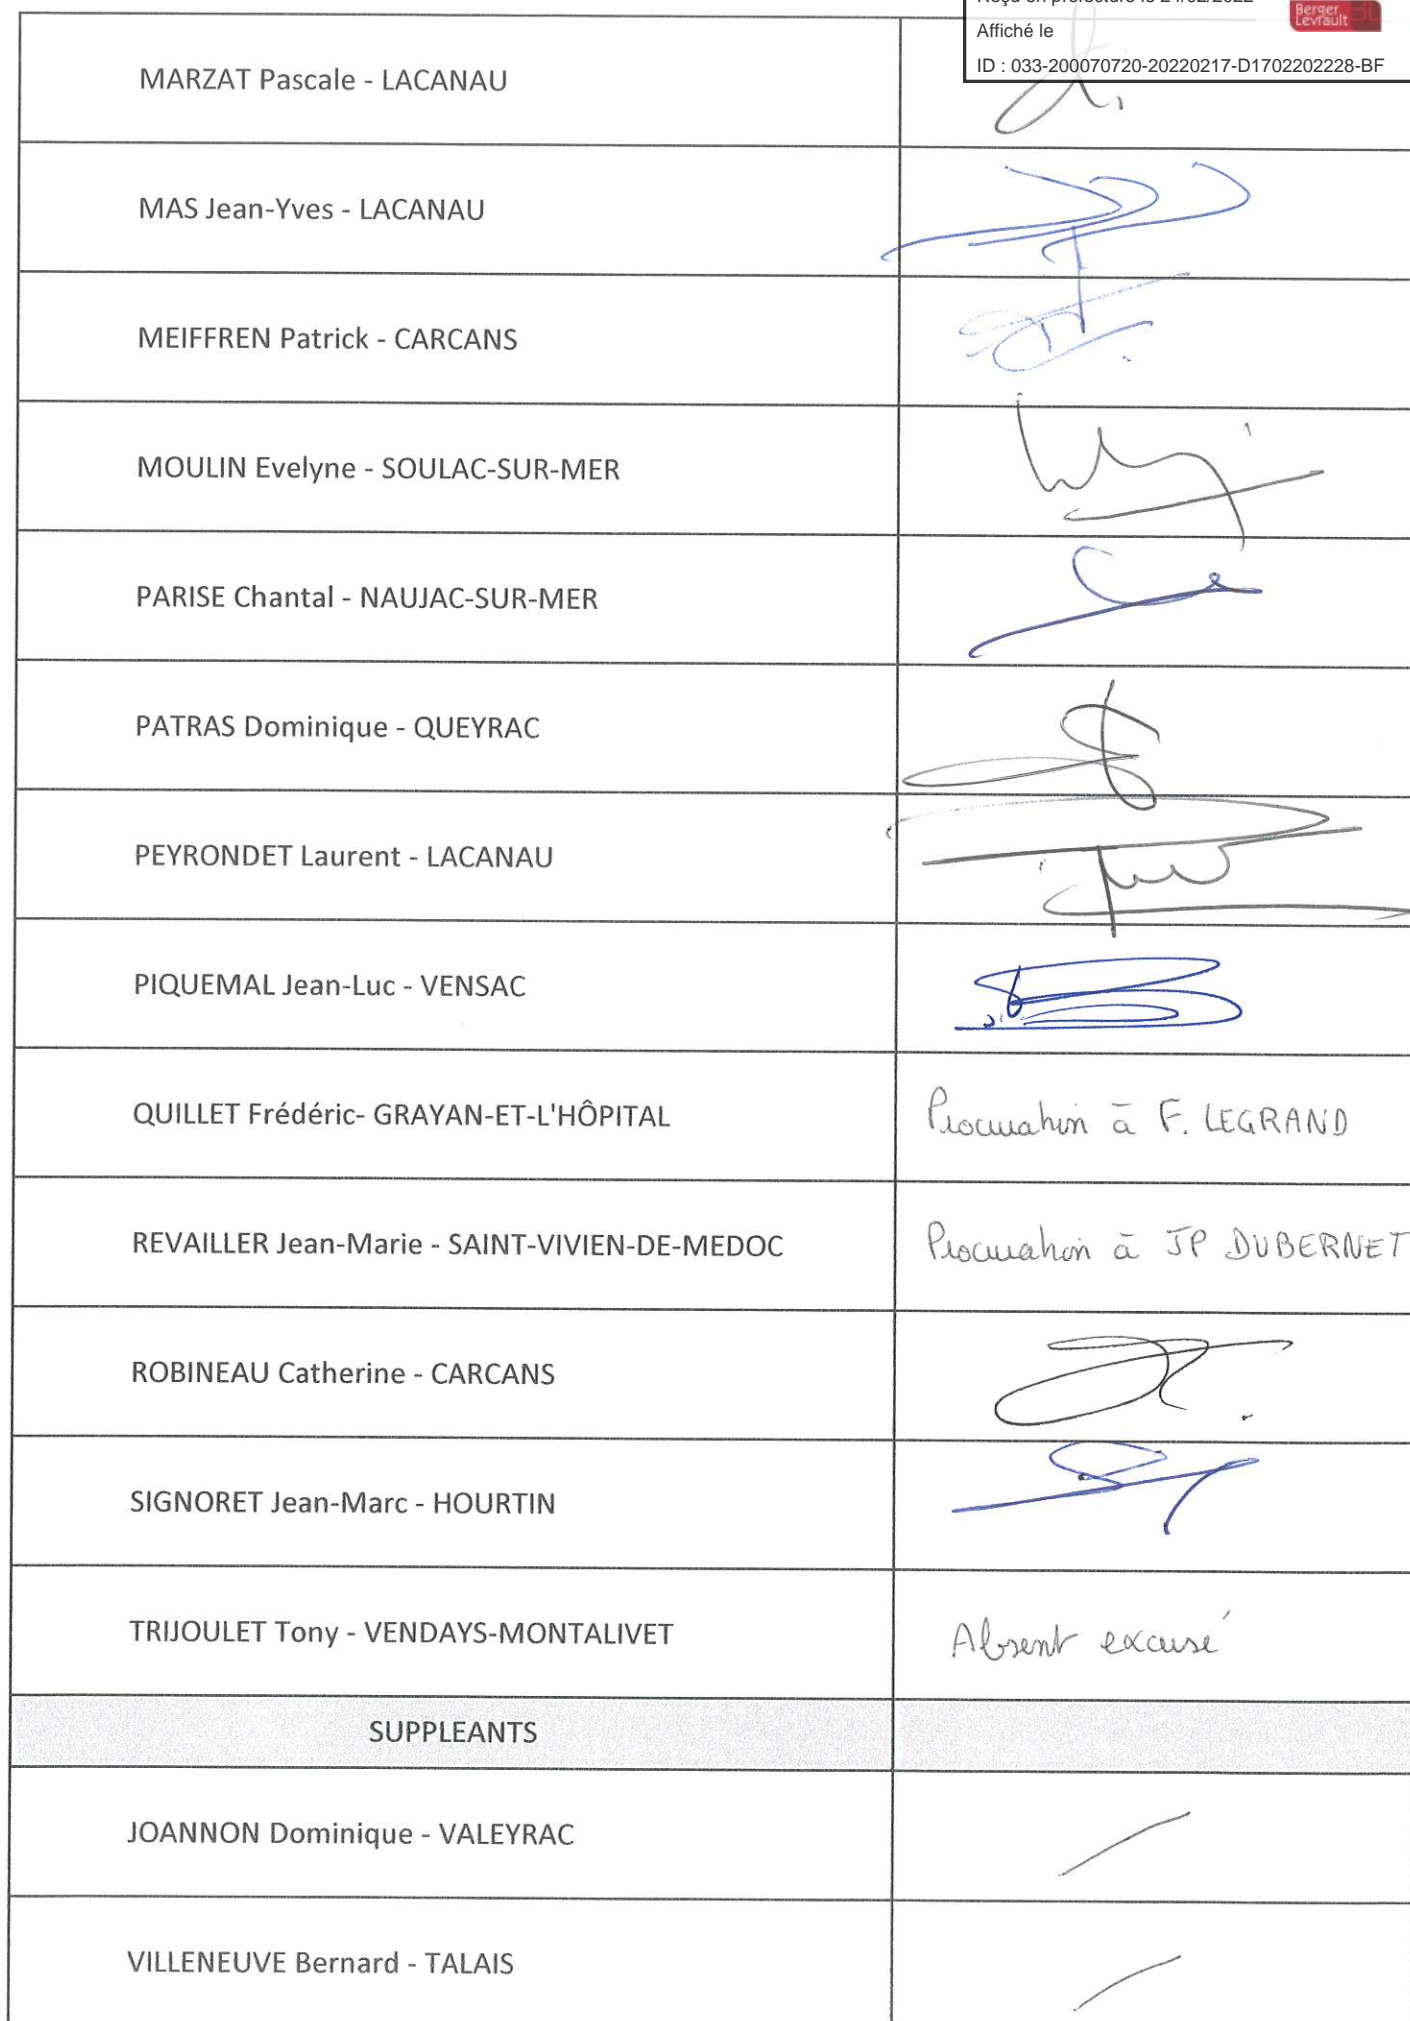 Reçu en préfecture le 24/02/2022
Berger
Levrault
Affiché le
ID : 033-200070720-20220217-D1702202228-BF
MARZAT Pascale - LACANAU
MAS Jean-Yves - LACANAU
MEIFFREN Patrick - CARCANS
MOULIN Evelyne - SOULAC-SUR-MER
PARISE Chantal - NAUJAC-SUR-MER
PATRAS Dominique - QUEYRAC
PEYRONDET Laurent - LACANAU
PIQUEMAL Jean-Luc - VENSAC
QUILLET Frédéric- GRAYAN-ET-L'HÔPITAL Procuration à F. LEGRAND
REVAILLER Jean-Marie - SAINT-VIVIEN-DE-MEDOC Procuration à JP DUBERNET
ROBINEAU Catherine - CARCANS
SIGNORET Jean-Marc - HOURTIN
TRIJOULET Tony - VENDAYS-MONTALIVET Absent excusé
SUPPLEANTS
JOANNON Dominique - VALEYRAC
VILLENEUVE Bernard - TALAIS